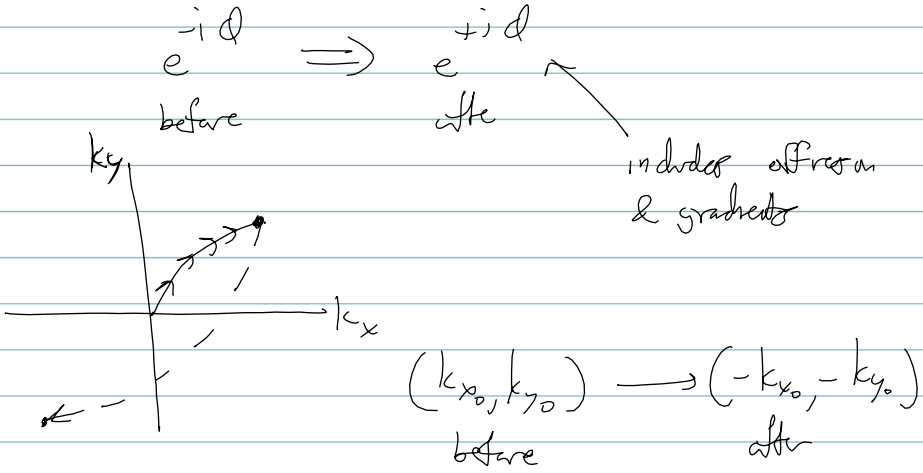 e^{-iφ} ⟹ e^{+iφ}
before after
includes offreson
& gradients
ky
kx
(kx₀, ky₀) → (-kx₀, -ky₀)
before after